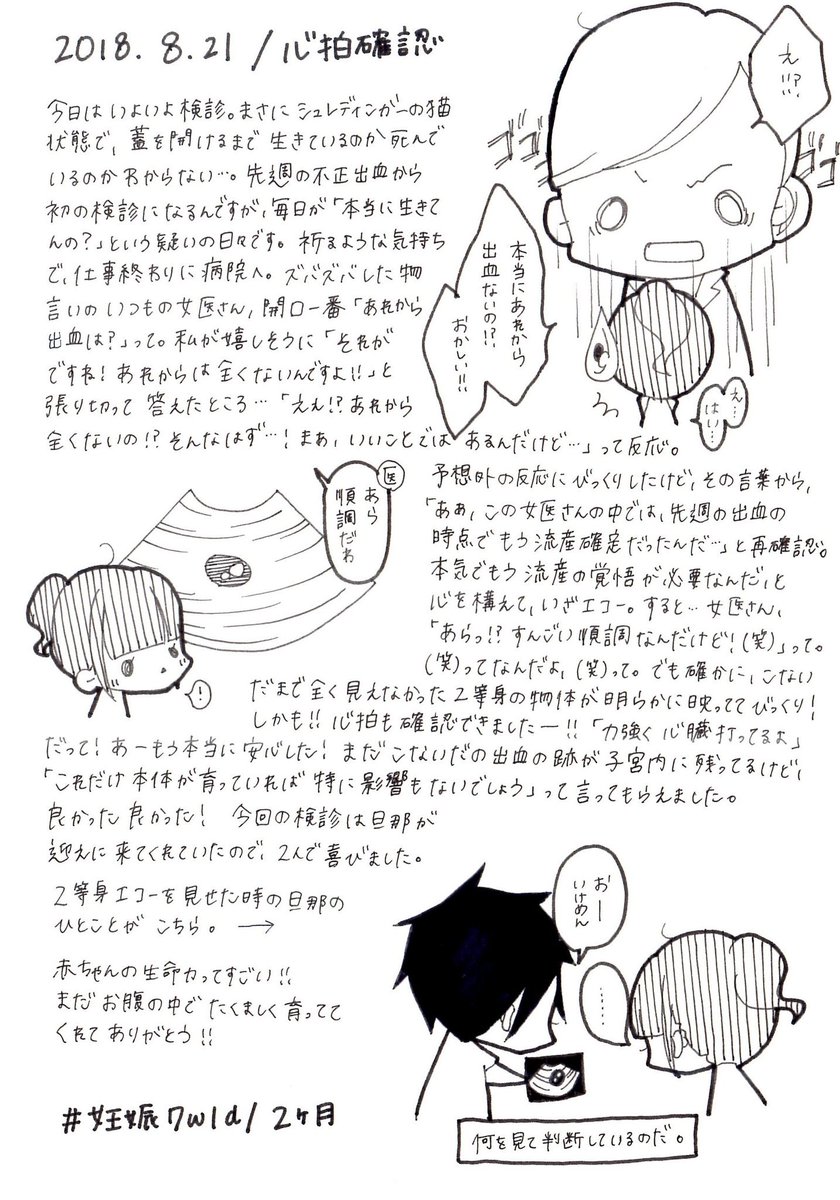 2018. 8.21 / 心拍確認
今日はいよいよ検診。まさにシュレディンガーの猫
状態で、蓋を開けるまで生きているのか死んで
いるのかわからない…。先週の不正出血から
初の検診になるんですが、毎日が「本当に生きて
んの?」という疑いの日々です。祈るような気持ち
で、仕事終わりに病院へ。ズバズバした物
言いのいつもの女医さん、開口一番「あれから
出血は?」って。私が嬉しそうに「それが
ですね!あれからは全くないんですよ!!」と
張り切って答えたところ…「ええ!?あれから
全くないの!?そんなはず…!まぁ、いいことではあるんだけど…」って反応。
え!!?
ゴゴゴ
ゴゴゴ
本当にあれから
出血ないの!?
おかしい!!
え…
はい…
予想外の反応にびっくりしたけど、その言葉から、
「あぁ、この女医さんの中では、先週の出血の
時点でもう流産確定だったんだ…」と再確認。
本気でもう流産の覚悟が必要なんだ、と
心を構えて、いざエコー。すると…女医さん、
「あらっ!?すんごい順調なんだけど!(笑)」って。
(笑)ってなんだよ、(笑)って。でも確かに、こない
だまで全く見えなかった2等身の物体が明らかに映っててびっくり!
しかも!!心拍も確認できましたー!!「力強く心臓打ってるよ」
だって!あーもう本当に安心した!まだこないだの出血の跡が子宮内に残ってるけど、
「これだけ本体が育っていれば特に影響もないでしょう」って言ってもらえました。
良かった良かった! 今回の検診は旦那が
迎えに来てくれていたので、2人で喜びました。
医
あら
順調だわ
!
2等身エコーを見せた時の旦那の
ひとことがこちら。→
赤ちゃんの生命力ってすごい!!
まだお腹の中でたくましく育ってて
くれてありがとう!!
おー
いけめん
……
何を見て判断しているのだ。
#妊娠7w1d/2ヶ月